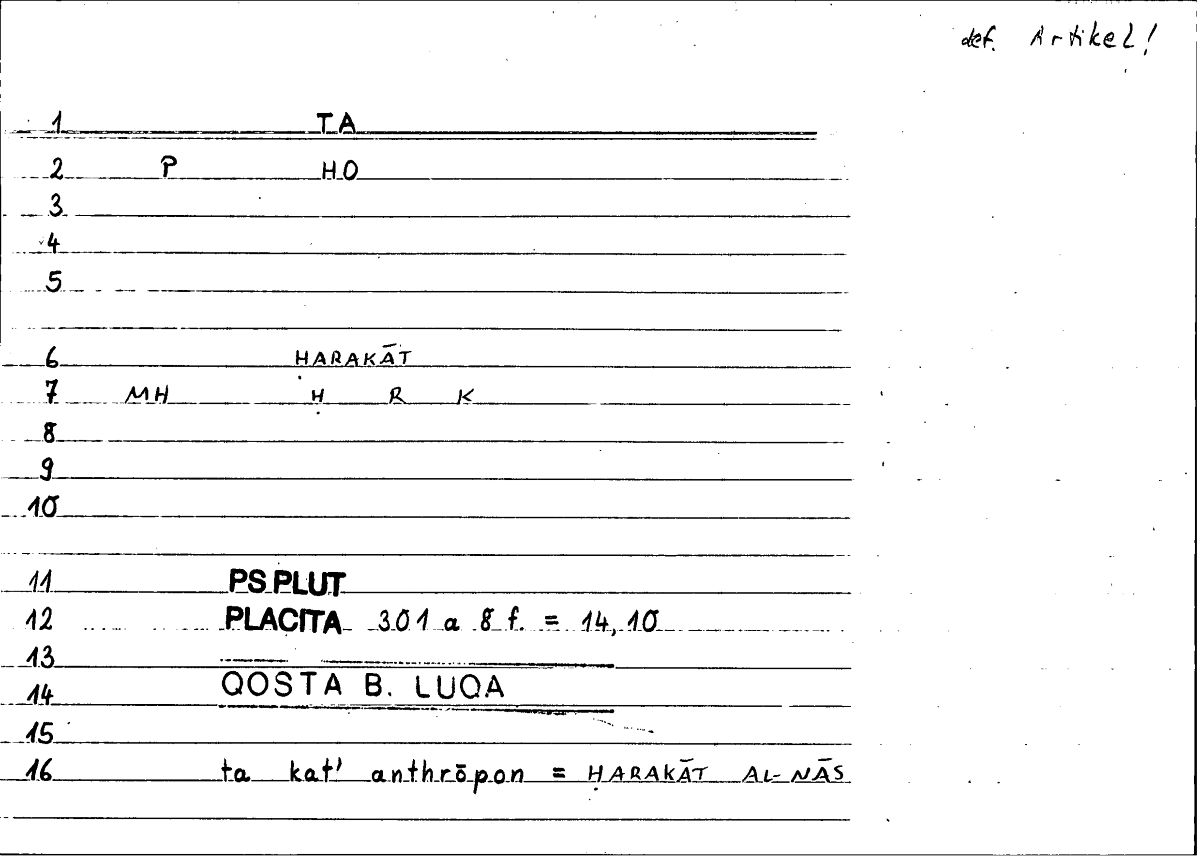 def. Artikel!
1 TA
2 P HO
3
4
5
6 HARAKĀT
7 MH Ḥ R K
8
9
10
11 PS PLUT
12 PLACITA 301 a 8 f. = 14,10
13
14 QOSTA B. LUQA
15
16 ta kat' anthrōpon = ḤARAKĀT AL-NĀS